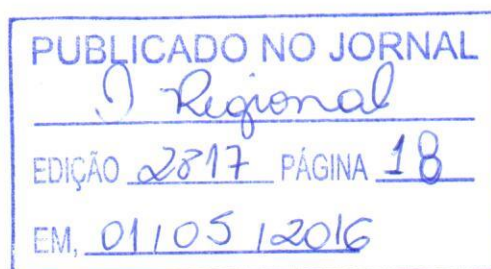 PUBLICADO NO JORNAL
O Regional
EDIÇÃO 2817 PÁGINA 18
EM, 01/05/2016